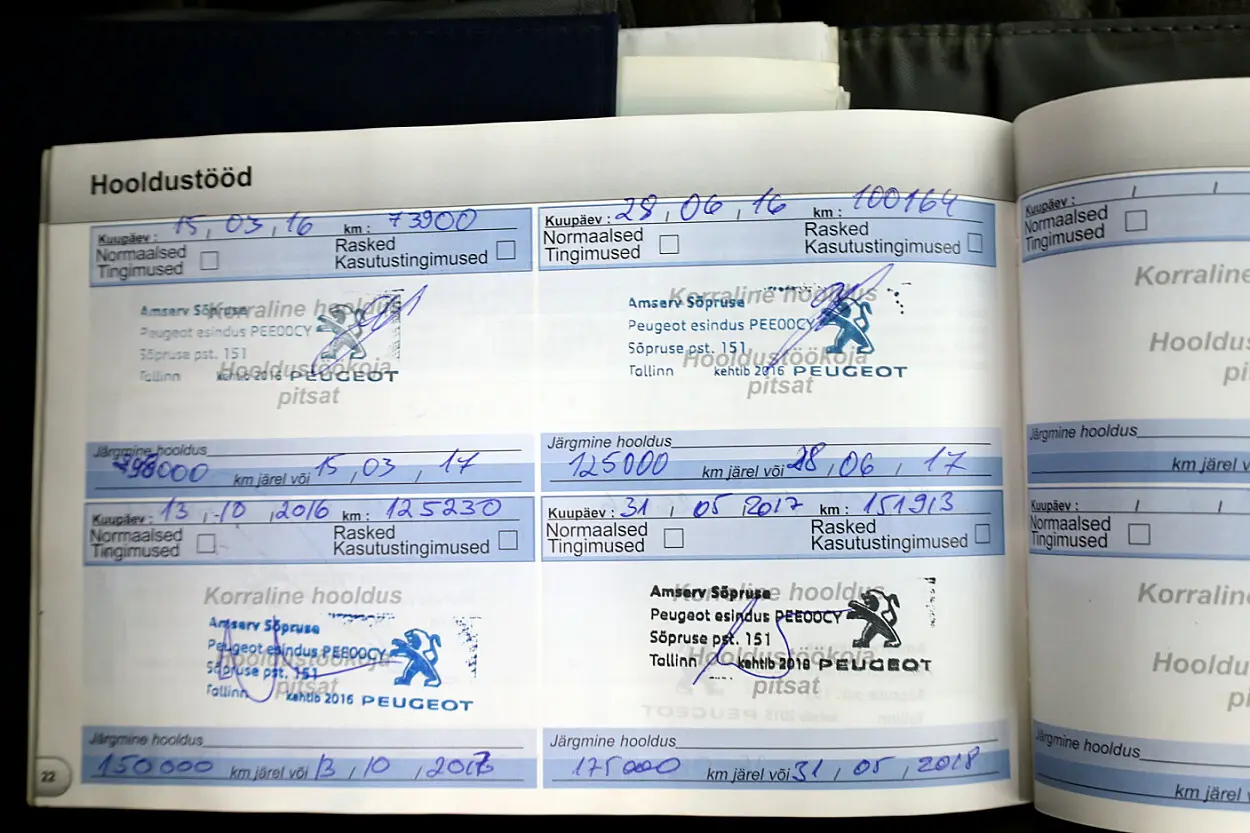 Hooldustööd
Kuupäev : 15, 03, 16 km : 73900
Normaalsed Tingimused
Rasked Kasutustingimused
Korraline hooldus
Hooldustöökoja
pitsat
Amserv Sõpruse
Peugeot esindus PEE00CY
Sõpruse pst. 151
Tallinn kehtib 2016 PEUGEOT
Järgmine hooldus
98000 km järel või 15, 03, 17
Kuupäev : 28, 06, 16 km : 100164
Normaalsed Tingimused
Rasked Kasutustingimused
Korraline hooldus
Hooldustöökoja
pitsat
Amserv Sõpruse
Peugeot esindus PEE00CY
Sõpruse pst. 151
Tallinn kehtib 2016 PEUGEOT
Järgmine hooldus
125000 km järel või 28, 06, 17
Kuupäev : 13, 10, 2016 km : 125230
Normaalsed Tingimused
Rasked Kasutustingimused
Korraline hooldus
Hooldustöökoja
pitsat
Amserv Sõpruse
Peugeot esindus PEE00CY
Sõpruse pst. 151
Tallinn kehtib 2016 PEUGEOT
Järgmine hooldus
150000 km järel või 13, 10, 2017
Kuupäev : 31, 05 2017 km : 151913
Normaalsed Tingimused
Rasked Kasutustingimused
Korraline hooldus
Hooldustöökoja
pitsat
Amserv Sõpruse
Peugeot esindus PEE00CY
Sõpruse pst. 151
Tallinn kehtib 2018 PEUGEOT
Järgmine hooldus
175000 km järel või 31, 05, 2018
22
Kuupäev : / /
Normaalsed
Tingimused
Korraline
Hooldus
pi
Järgmine hooldus
km järel v
Kuupäev : / /
Normaalsed
Tingimused
Korraline
Hooldu
p
Järgmine hooldus
km järel v